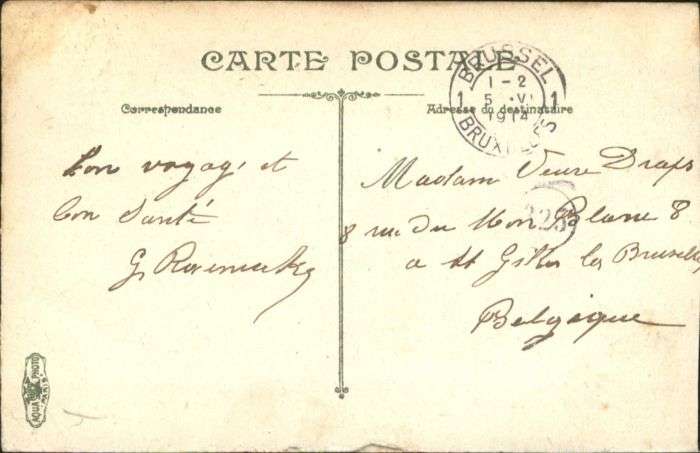 CARTE POSTALE
Correspondance
Adresse du destinataire
BRUSSEL
1 1-2 1
5 VI
1914
BRUXELLES
bon voyage et
bon Santé
G
Madam Veuve Draps
8 rue du Mon Blanc 8
323
a St Gilles les Bruxelles
Belgique
AQUA PHOTO
PARIS